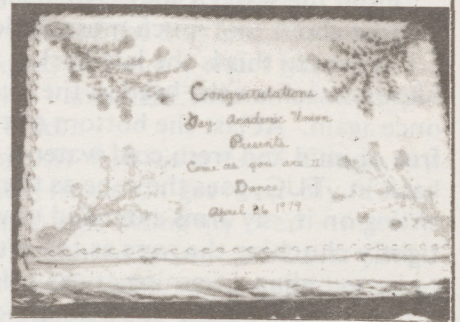 Congratulations
Gay Academic Union
Presents
Come as you are II
Dance
April 26 1979